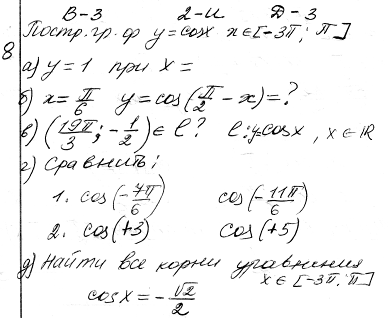 В-3 2-И Д-3
8 Постр. гр. ф y=cosx x∈[-3π; π]
а) y=1 при x=
б) x=π/6 y=cos(π/2-x)=?
в) (19π/3; -1/2)∈l? l: y=cosx, x∈ℝ
г) Сравнить:
1. cos(-7π/6) cos(-11π/6)
2. cos(+3) cos(+5)
д) Найти все корни уравнения
x∈[-3π; π]
cosx=-√2/2